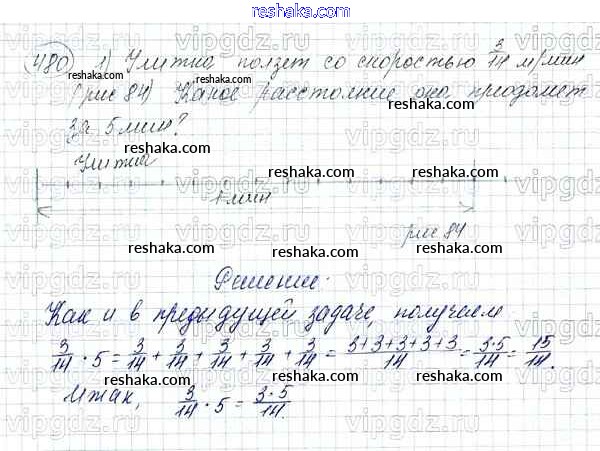 reshaka.com
480 1) Улитка ползет со скоростью 3/14 м/мин
(рис 84) Какое расстояние она преодолеет
за 5 мин?
Улитка
1 мин
рис 84
Решение.
Как и в предыдущей задаче, получаем
3/14 · 5 = 3/14 + 3/14 + 3/14 + 3/14 + 3/14 = 3+3+3+3+3/14 = 3·5/14 = 15/14.
Итак, 3/14 · 5 = 3·5/14.
reshaka.com
vipgdz.ru